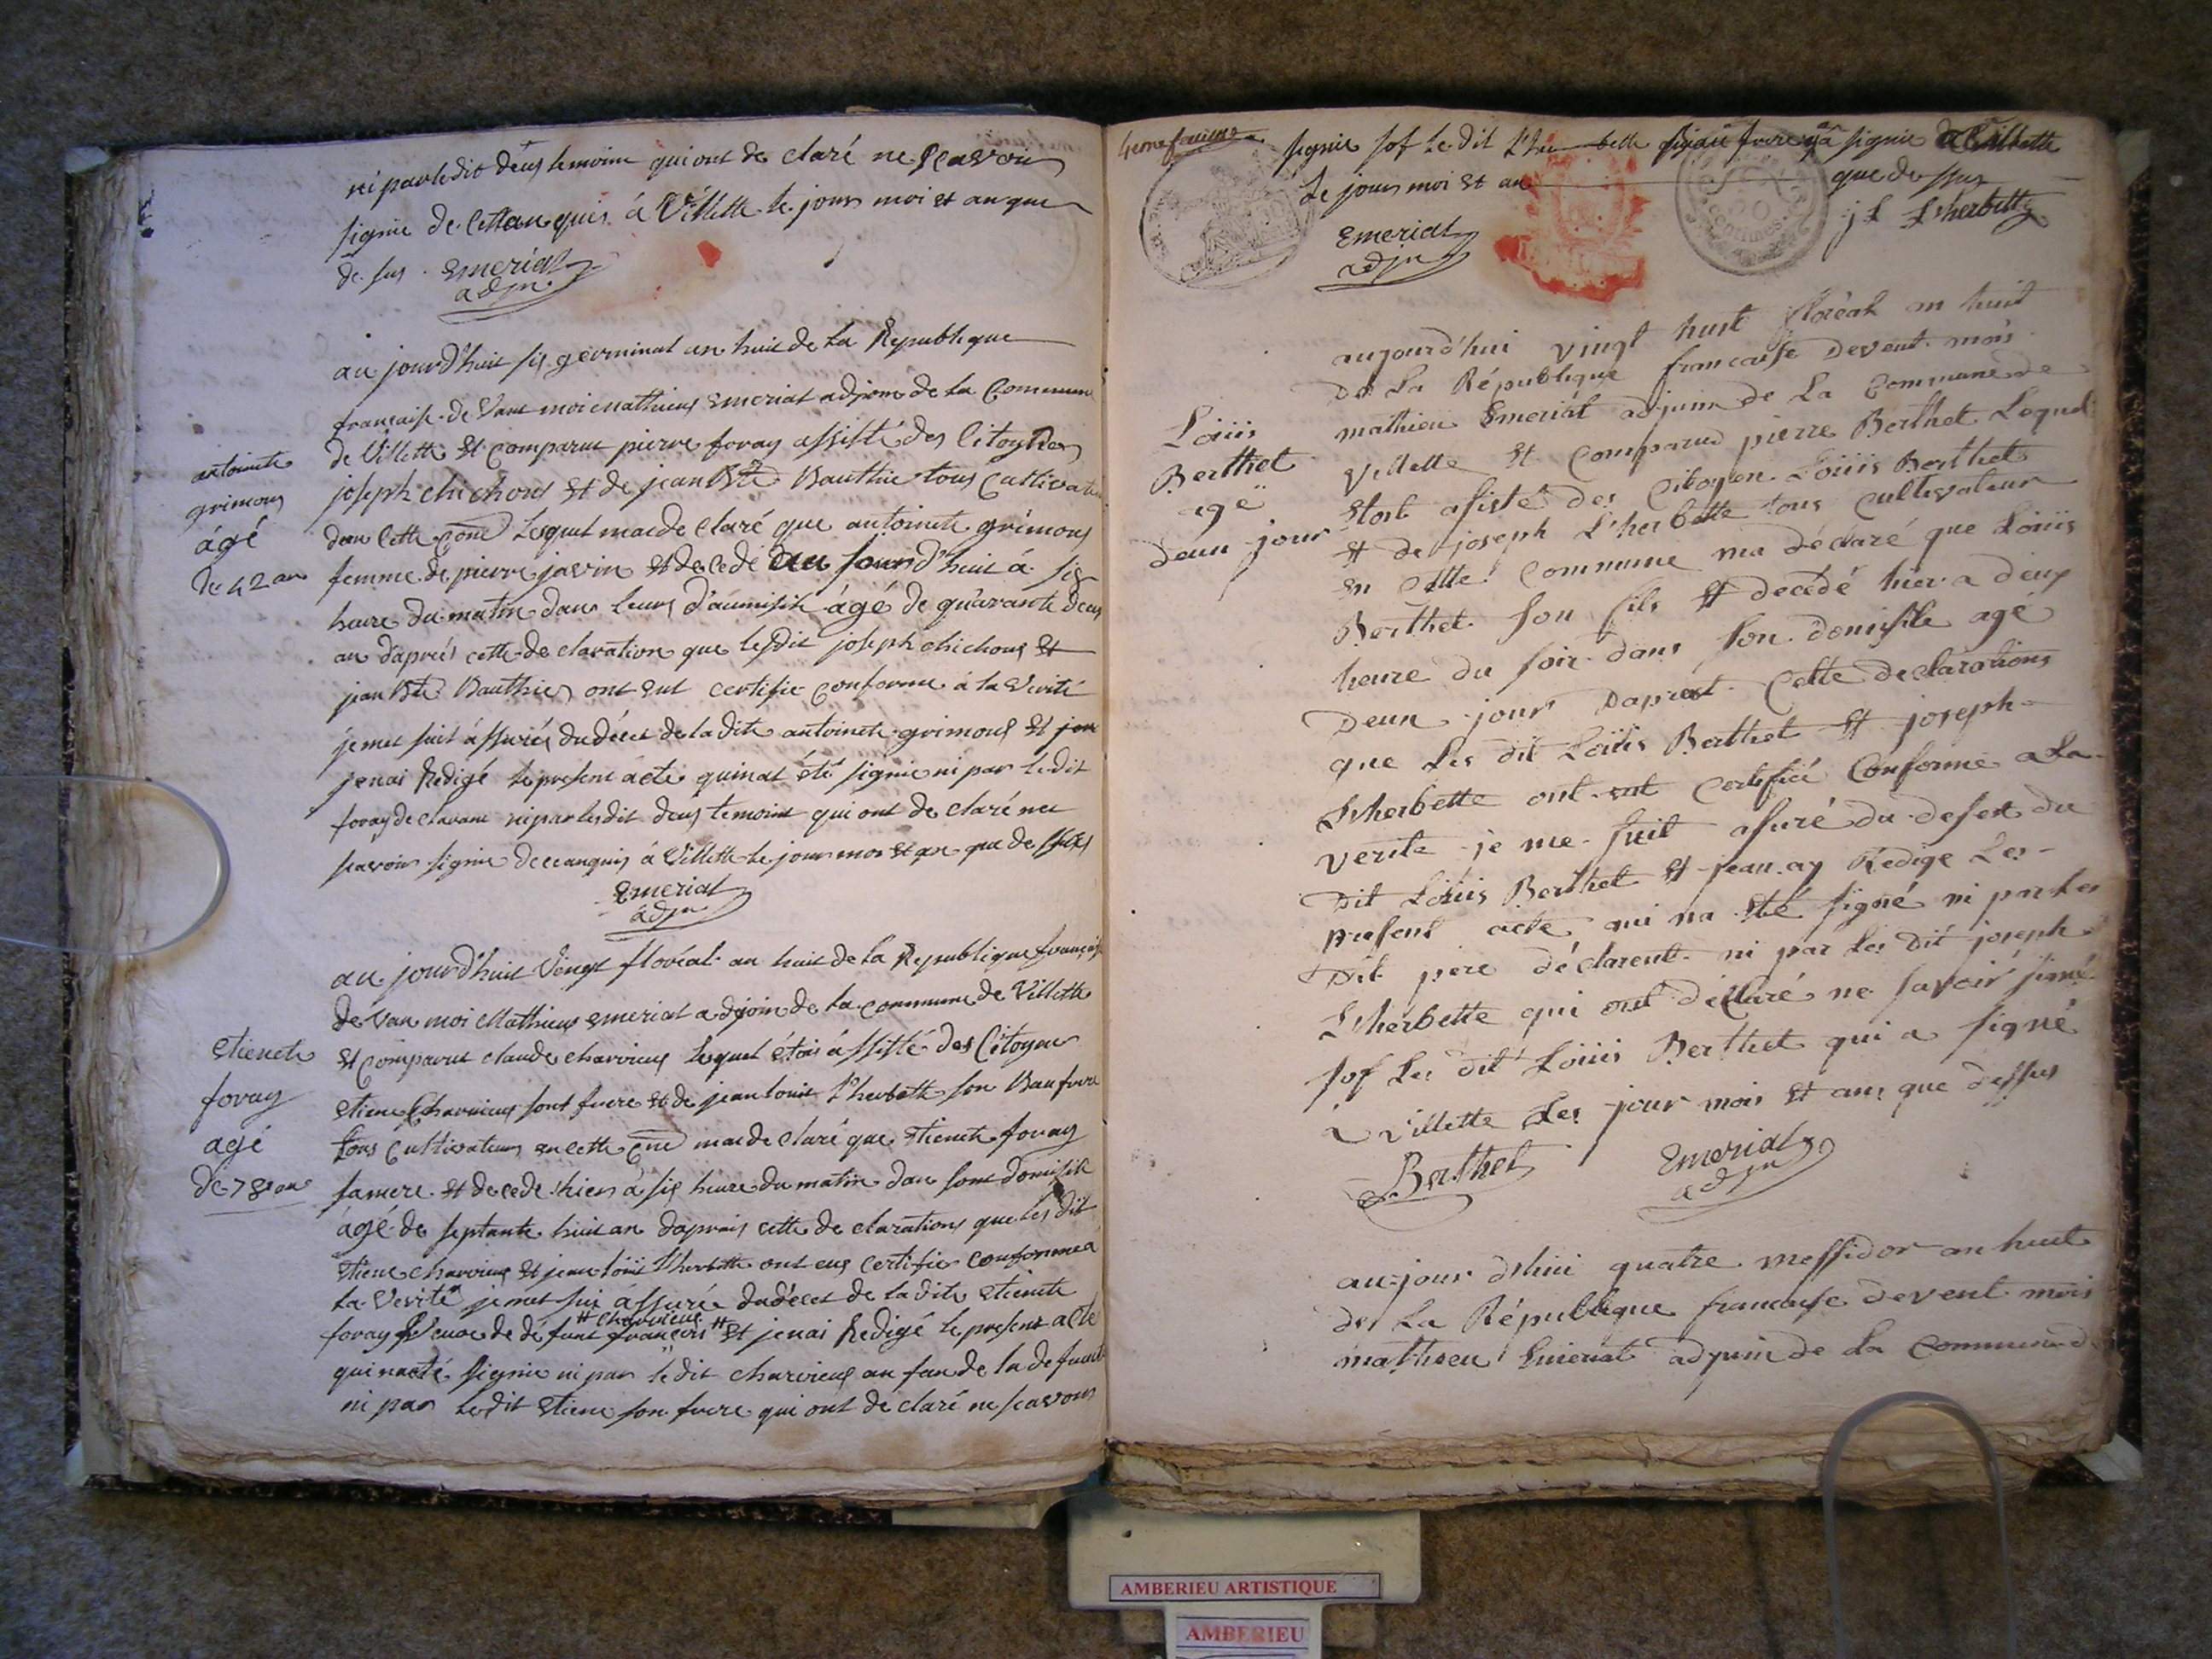 ni par le dit deus temoins qui ont de claré ne sçavoir
signie de Cettan quis á Villette le jours moi et an que
de sus . Emeriat
adjn.
au jourd'huit six germinal an huit de la Republique
française de vant moi mathieus Emeriat adjoin de la Commune
de Villette Et comparut pierre foray assisté des Citoyens
joseph chichous Et de jean Bte Bauthie tous Cultivateur
dan Cette Cone Lequel ma de claré que antoinete grimous
femme de pierre javin Et de ce dé au jourd'huit á six
heure du matin dans leurs d'aumisile ágé de quarante deus
an d'aprés cette de claration que lesdit joseph chichous Et
jean Bte Bauthier ont eut certifie conforme á la verité
je met suit ássurés du déces de la dite antoinete grimous Et jen
jenai Redigé le present acte quinat été signie ni par le dit
foray de clarant ni par lesdit deus temoins qui ont de claré ne
scavoir signie de ce anquis á Villette le jour moi Et an que de ssus
Emeriat
ádjn
antoinete
grimous
ágé
de 42 an
au jourd'huit Vengt floréal an huit de la Republique française
de van moi Mathieus Emeriat adjoin de la commune de Villette
Et comparut claude charvieus lequel étois ássisté des Citoyens
etiene Charvieus sont frere Et de jean louis l'herbette son Baufrere
tous Cultivateurs en cette Cne ma de claré que Etienete foray
sa mere Et de ce de hier á six heure du matin dan sont domisile
ágé de septante huit an d'aprais cette de clarations que les dit
etiene charvieus Et jean loüis l'herbette ont eus certifier conforme á
la verité je met sui assuré du déces de la dite Etienete
# charvieus #
foray Veuve de défunt françois Et jenai Redigé le present acte
qui na eté signie ni par le dit charvieus an fan de la defunte
ni par le dit Etiene son frere qui ont de claré ne scavoir
Etienete
foray
agé
de 78 an
4eme feuille
signie sof le dit L'herbette signie á Villette
le jours moi Et an que de ssus
Emeriat j L L'herbette
adjn
CENTIMES
aujourd'hui vingt huit floréal an huit
de La République francaise devent mois
mathieu Emeriat adjuin de La Commune de
Villette Et Comparud pierre Berthet Lequel
Etoit asisté des Citoyen Loüis Berthet
Et de joseph L'herbette tous Cultivateur
en Cette Commune ma déclaré que Loüis
Berthet son fils Et decédé hier a deux
heure du soir dans son domisile agé
Deun jour Daprest Cette declarations
que Les dit Loüis Berthet Et joseph
Lherbette ont eut Certifié Conforme a La
verité je me suit asuré du deset du
Dit Loüis Berthet Et jean ay Redige Les
present acte qui na Eté signé ni par Les
Dit pere déclarent ni par Les dit joseph
Lherbette qui ont déclaré ne savoir signé
sof Les dit Loüis Berthet qui a signé
a villette Les jour mois Et ans que dessus
Berthet Emeriat
adjn
Loüis
Berthet
agé
deun jour
au-jour dhui quatre messidor an huit
de La République francaise devent mois
mathieu Emeriat adjuin de La Commune d
AMBERIEU ARTISTIQUE
AMBERIEU